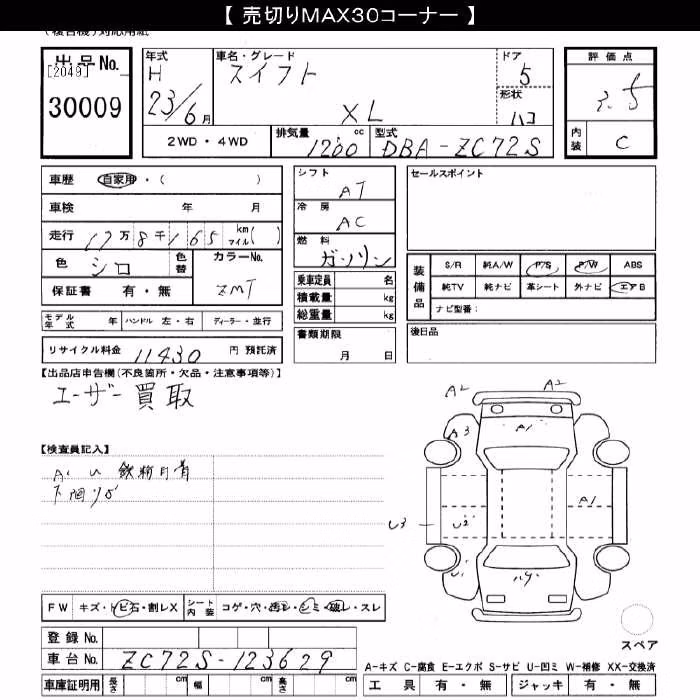 【 売切りMAX30コーナー 】
出品No. 年式 車名・グレード ドア 評価点
[2049] H スイフト 5
30009 23/6月 XL 形状 ハコ 3.5
2WD・4WD 排気量 1200cc 型式 DBA-ZC72S 内装 C
車歴 自家用・( ) シフト AT セールスポイント
車検 年 月 冷房 AC
走行 17万8千165 km マイル( ) 燃料 ガソリン
色 シロ 色替 カラーNo. ZMT 乗車定員 名
装備品 S/R 純A/W P/S P/W ABS
保証書 有・無 積載量 kg 純TV 純ナビ 革シート 外ナビ エアB
総重量 kg ナビ型番:
モデル年式 年 ハンドル 左・右 ディーラー・並行 書類期限 年 月 日 後日品
リサイクル料金 11430 円 預託済
【出品店申告欄(不良箇所・欠品・注意事項等)】
ユーザー買取
A2 A2
A3 A1
【検査員記入】
A' U 鉄粉月着
下回りサビ
A1
U3 U2
U1
FW キズ・トビ石・割レX シート内装 コゲ・穴・汚レ・シミ・破レ・スレ
登録No.
スペア
車台No. ZC72S-123629
A-キズ C-腐食 E-エクボ S-サビ U-凹ミ W-補修 XX-交換済
車庫証明用 長さ cm 幅 cm 高さ cm 工具 有・無 ジャッキ 有・無